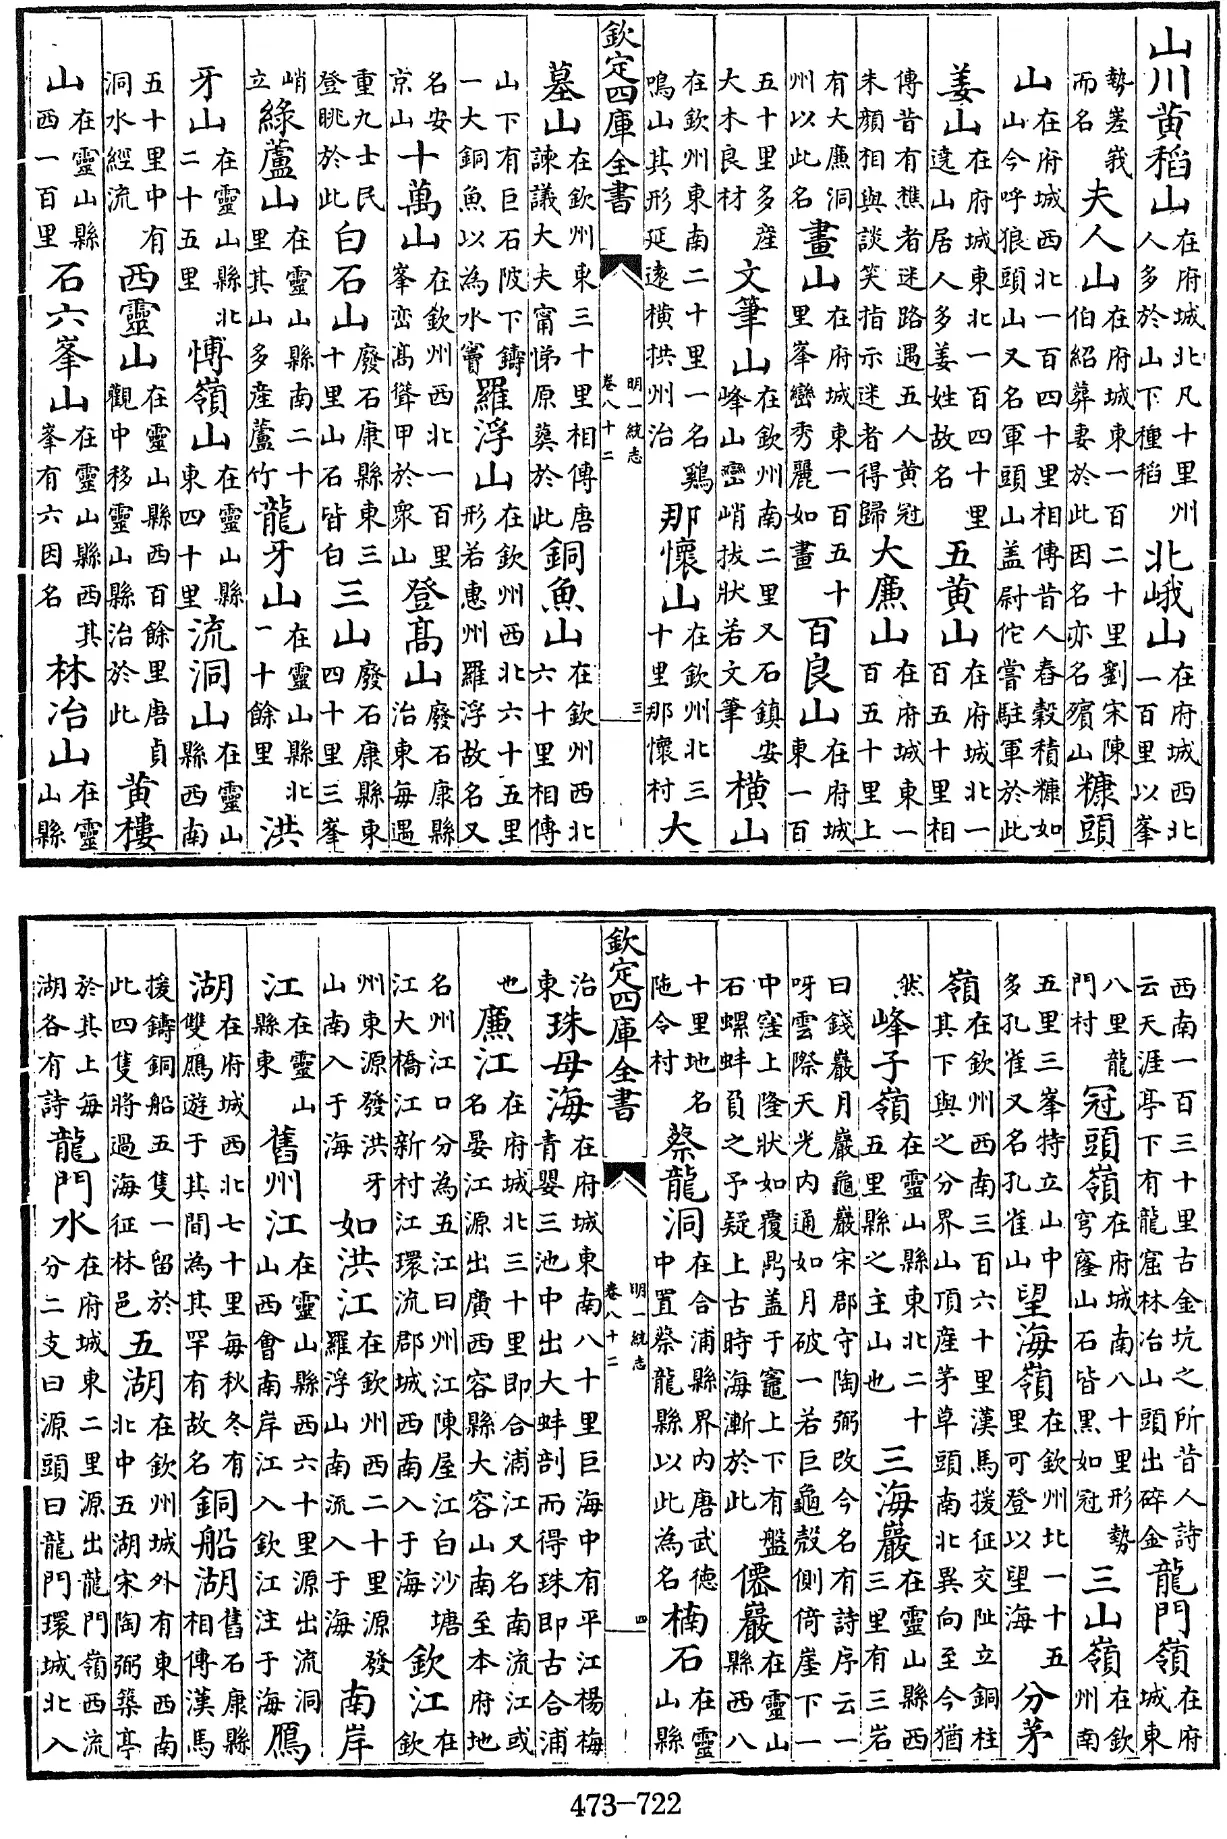 山川黄稻山在府城北凡十里州人多於山下種稻北峨山在府城西北一百里以峯
勢嵳峩而名夫人山在府城東一百二十里劉宋陳伯紹葬妻於此因名亦名殯山糠頭
山在府城西北一百四十里相傳昔人舂穀積糠如山今呼狼頭山又名軍頭山盖尉佗嘗駐軍於此
姜山在府城東北一百四十里逹山居人多姜姓故名五黄山在府城北一百五十里相
傳昔有樵者迷路遇五人黄冠朱顔相與談笑指示迷者得歸大亷山在府城東一百五十里上
有大亷洞州以此名畫山在府城東一百五十里峯巒秀麗如畫百良山在府城東一百
五十里多産大木良材文筆山在欽州南二里又石鎮安峰山巒峭拔狀若文筆横山
在欽州東南二十里一名鷄鳴山其形延逺横拱州治那懷山在欽州北三十里那懷村大
欽定四庫全書 明一統志 卷八十二 三
墓山在欽州東三十里相傳唐諫議大夫甯悌原葬於此銅魚山在欽州西北六十里相傳
山下有巨石陂下鑄一大銅魚以為水竇羅浮山在欽州西北六十五里形若惠州羅浮故名又
名安京山十萬山在欽州西北一百里峯巒髙聳甲於衆山登髙山廢石康縣治東毎遇
重九士民登眺於此白石山廢石康縣東三十里山石皆白三山廢石康縣東四十里三峯
峭立緑蘆山在靈山縣南二十里其山多産蘆竹龍牙山在靈山縣北一十餘里洪
牙山在靈山縣北二十五里博嶺山在靈山縣東四十里流洞山在靈山縣西南
五十里中有洞水經流西靈山在靈山縣西百餘里唐貞觀中移靈山縣治於此黄樓
山在靈山縣西一百里石六峯山在靈山縣西其峯有六因名林冶山在靈山縣
西南一百三十里古金坑之所昔人詩云天涯亭下有龍窟林冶山頭出碎金龍門嶺在府城東
八里龍門村冠頭嶺在府城南八十里形勢穹窿山石皆黒如冠三山嶺在欽州南
五里三峯特立山中多孔雀又名孔雀山望海嶺在欽州北一十五里可登以望海分茅
嶺在欽州西南三百六十里漢馬援征交阯立銅柱其下與之分界山頂産茅草頭南北異向至今猶
然峰子嶺在靈山縣東北二十五里縣之主山也三海巖在靈山縣西三里有三岩
曰錢巖月巖龜巖宋郡守陶弼改今名有詩序云一呀雲際天光内通如月破一若巨龜殻側倚崖下一
中窪上隆狀如覆鬲盖于竈上下有盤石螺蚌負之予疑上古時海漸於此僊巖在靈山縣西八
十里地名陁令村蔡龍洞在合浦縣界内唐武徳中置蔡龍縣以此為名楠石在靈山縣
欽定四庫全書 明一統志 卷八十二 四
治東珠母海在府城東南八十里巨海中有平江楊梅青嬰三池中出大蚌剖而得珠即古合浦
也亷江在府城北三十里即合浦江又名南流江或名晏江源出廣西容縣大容山南至本府地
名州江口分為五江曰州江陳屋江白沙塘江大橋江新村江環流郡城西南入于海欽江在欽
州東源發洪牙山南入于海如洪江在欽州西二十里源發羅浮山南流入于海南岸
江在靈山縣東舊州江在靈山縣西六十里源出流洞山西㑹南岸江入欽江注于海鴈
湖在府城西北七十里毎秋冬有雙鴈遊于其間為其罕有故名銅船湖舊石康縣相傳漢馬
援鑄銅船五隻一留於此四隻將過海征林邑五湖在欽州城外有東西南北中五湖宋陶弼築亭
於其上毎湖各有詩龍門水在府城東二里源出龍門嶺西流分二支曰源頭曰龍門環城北入
473-722